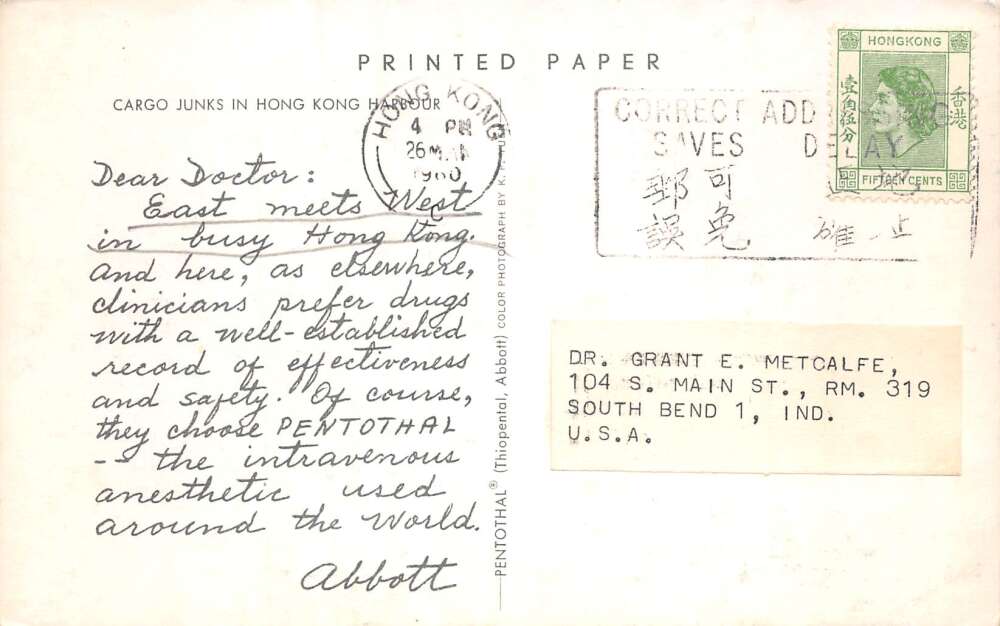 PRINTED PAPER
CARGO JUNKS IN HONG KONG HARBOUR
Dear Doctor:
East meets West
in busy Hong Kong.
And here, as elsewhere,
clinicians prefer drugs
with a well-established
record of effectiveness
and safety. Of course,
they choose PENTOTHAL
-- the intravenous
anesthetic used
around the World.
Abbott
PENTOTHAL® (Thiopental, Abbott) COLOR PHOTOGRAPH BY K.
HONG KONG
4 PM
26
1960
CORRECT ADD
SAVES DELAY
郵 可
誤 免 確 址
HONGKONG
壹角伍分
香港
FIFTEEN CENTS
DR. GRANT E. METCALFE,
104 S. MAIN ST., RM. 319
SOUTH BEND 1, IND.
U.S.A.